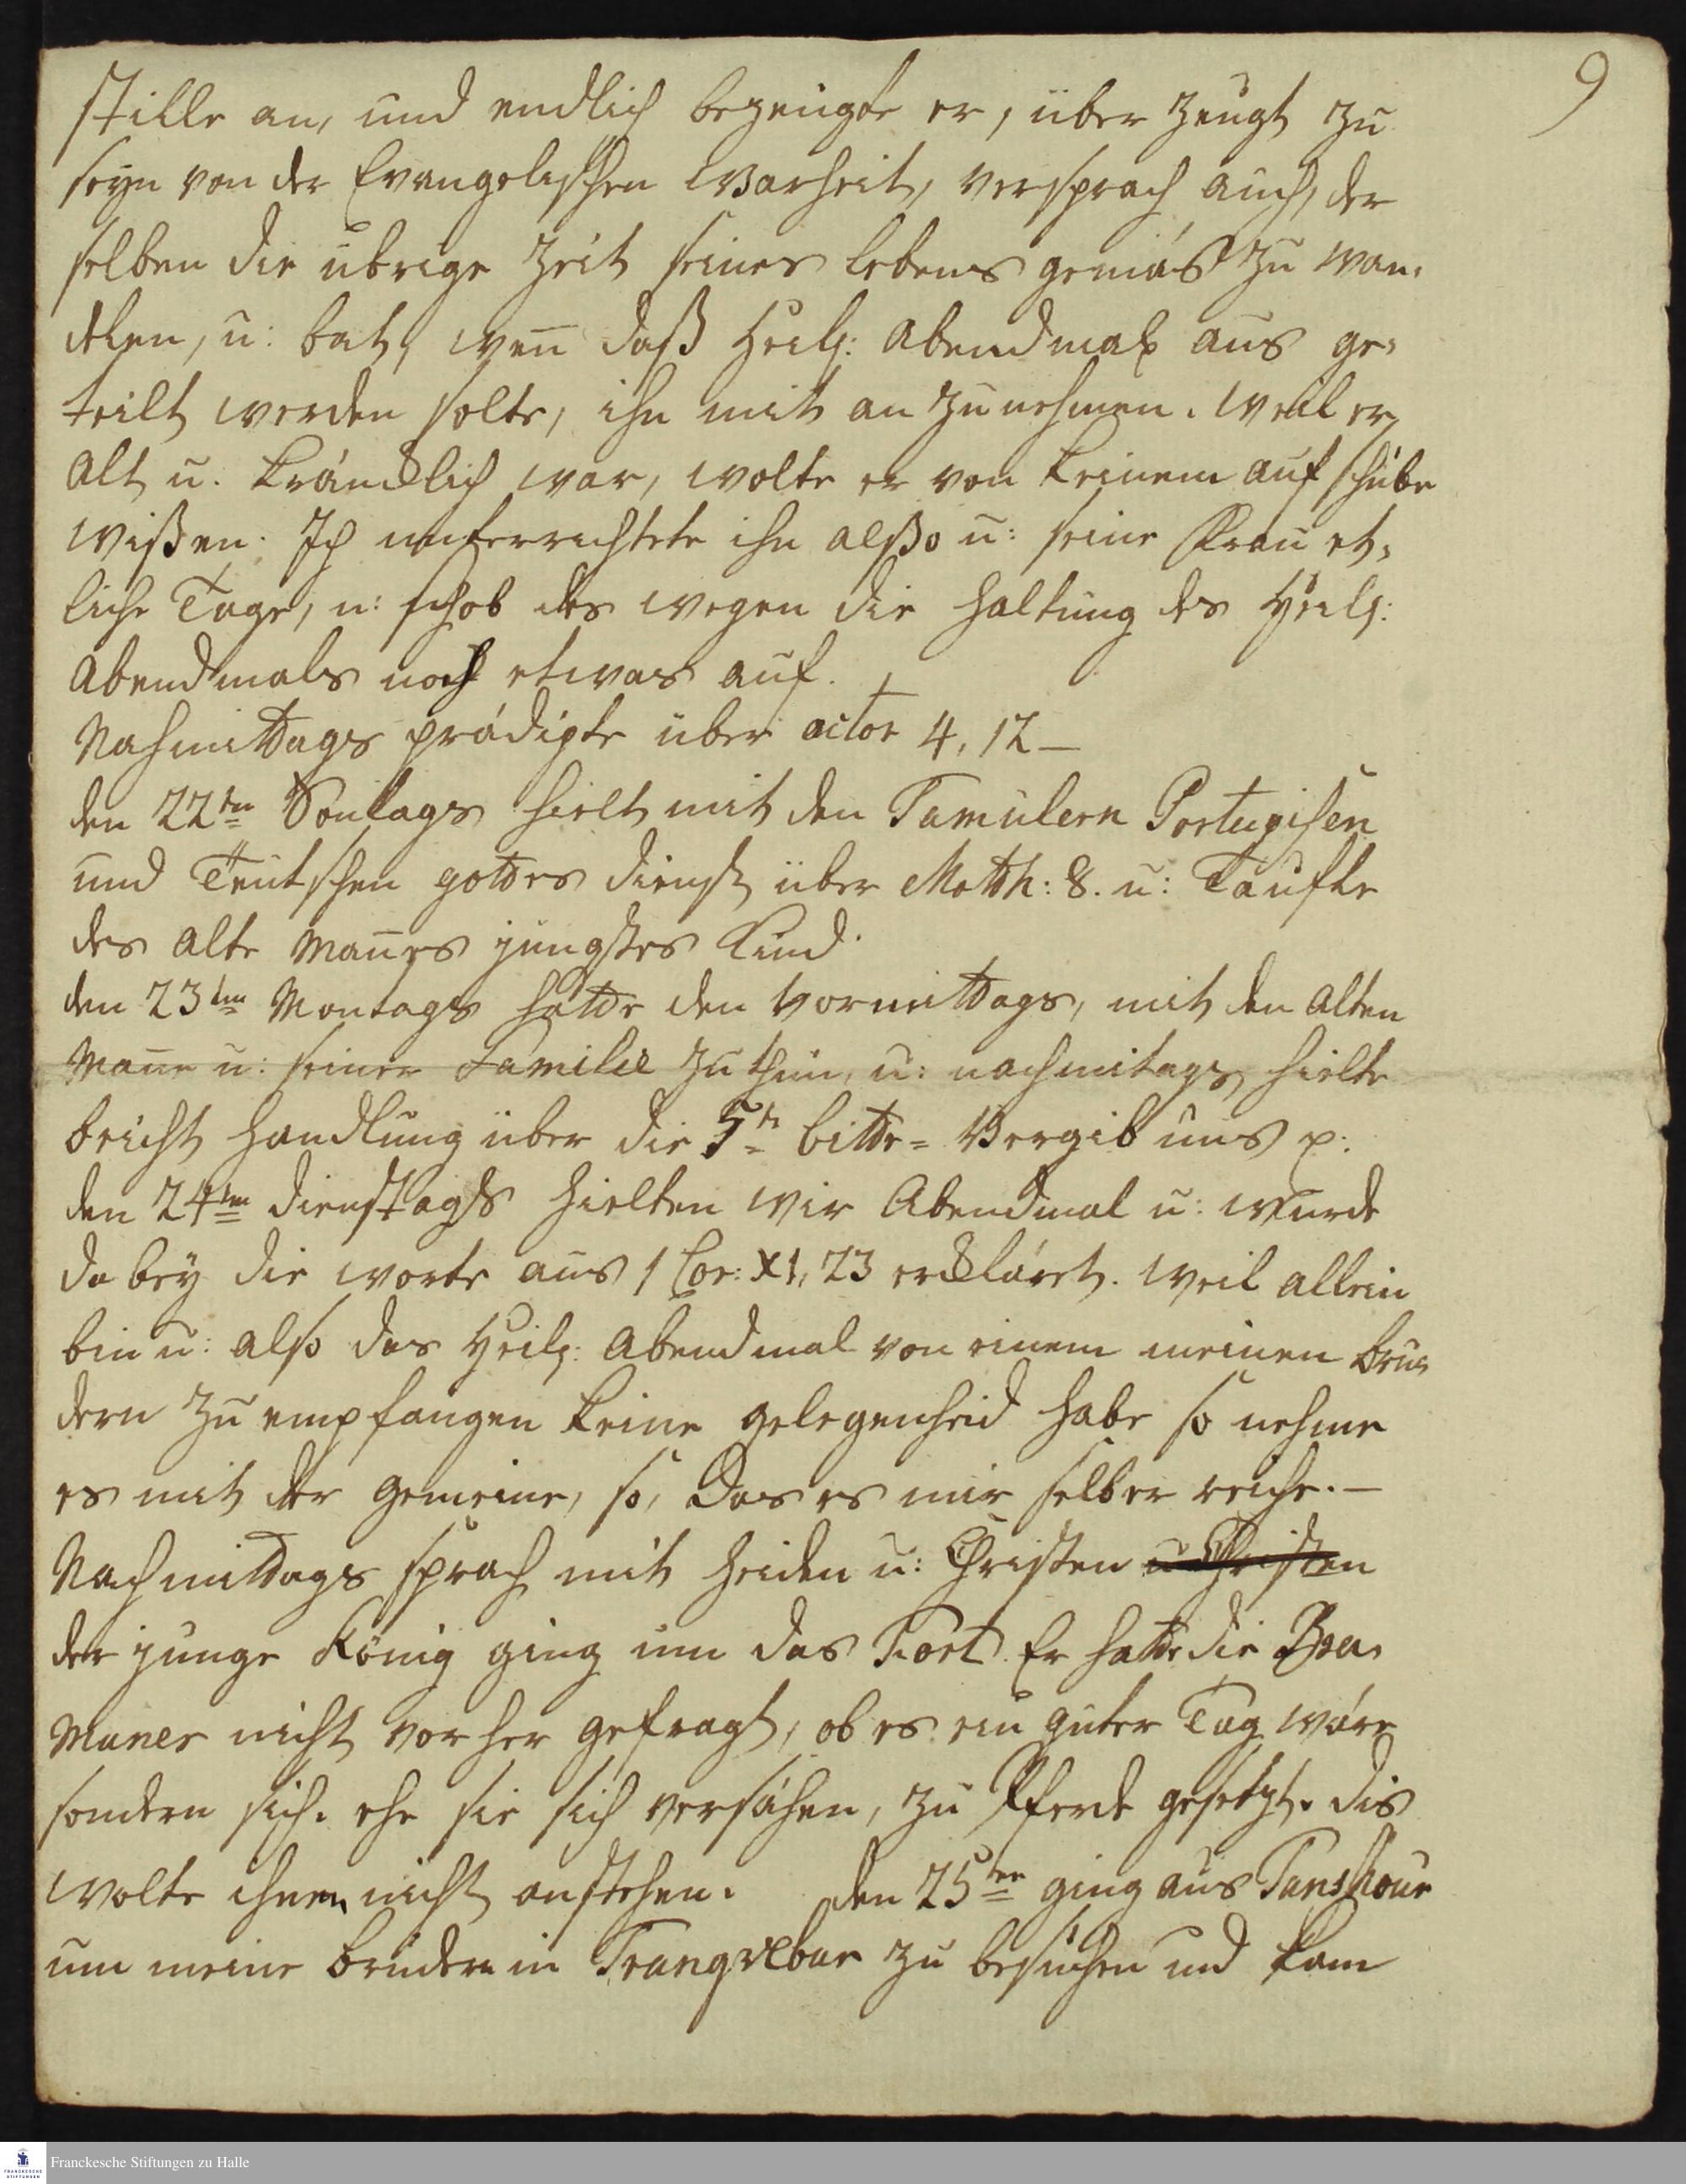 9
stille an, und endlich bezeugte er, über zeugt zu
seyn von der Evangelischen Warheit, versprach auch, der
selben die übrige Zeit seines Lebens gemäs zu wan,
delen, u: bat, weñ daß Heilg: Abendmal aus ge,
teilt werden solte, ihn mit an zu nehmen. Weil er
alt u. kräncklich war, wolte er von keinem aufschube
wißen. Ich unterrichtete ihn alßo u: seine Frau et,
liche Tage, u: schob des wegen die Haltung des Heilg:
Abendmals noch etwas auf.
Nahmittags prädigte über actor 4, 12 —
den 22ten Sontags hielt mit den Tamulern Portugisen
und Teutschen gottes dienst über Matth: 8. u: Taufte
des alte Mañes jungstes Kind.
den 23ten Montags hatte den Vormittags, mit den alten
Mañe u: seiner Familie zu thun, u: nachmitags hielte
bricht Handlung über die 5te bitte = Vergib uns p.
den 24ten Dienstags hielten wir Abendmal u: wurde
da bey die worte aus 1 Cor: XI, 23 erckläret. Weil allein
bin u: also das Heilg: Abendmal von einem meinen brü,
dern zu empfangen keine gelegenheid habe so nehme
es mit der gemeine, so, das es mir selber reiche. —
Nachmittags sprach mit Heiden u: Christen u Christen
der junge König ging um das Fort. Er hatte die Bra,
maner nicht vor her gefragt, ob es ein guter Tag wäre
sondern sich. ehe sie sich versähen, zu Pferde gesetzt. dis
wolte ihnen nicht anstehen. den 25ten ging aus Tanshour
um meine brüder in Trangvebar zu besuchen und kam
Franckesche Stiftungen zu Halle
FRANCKESCHE
STIFTUNGEN